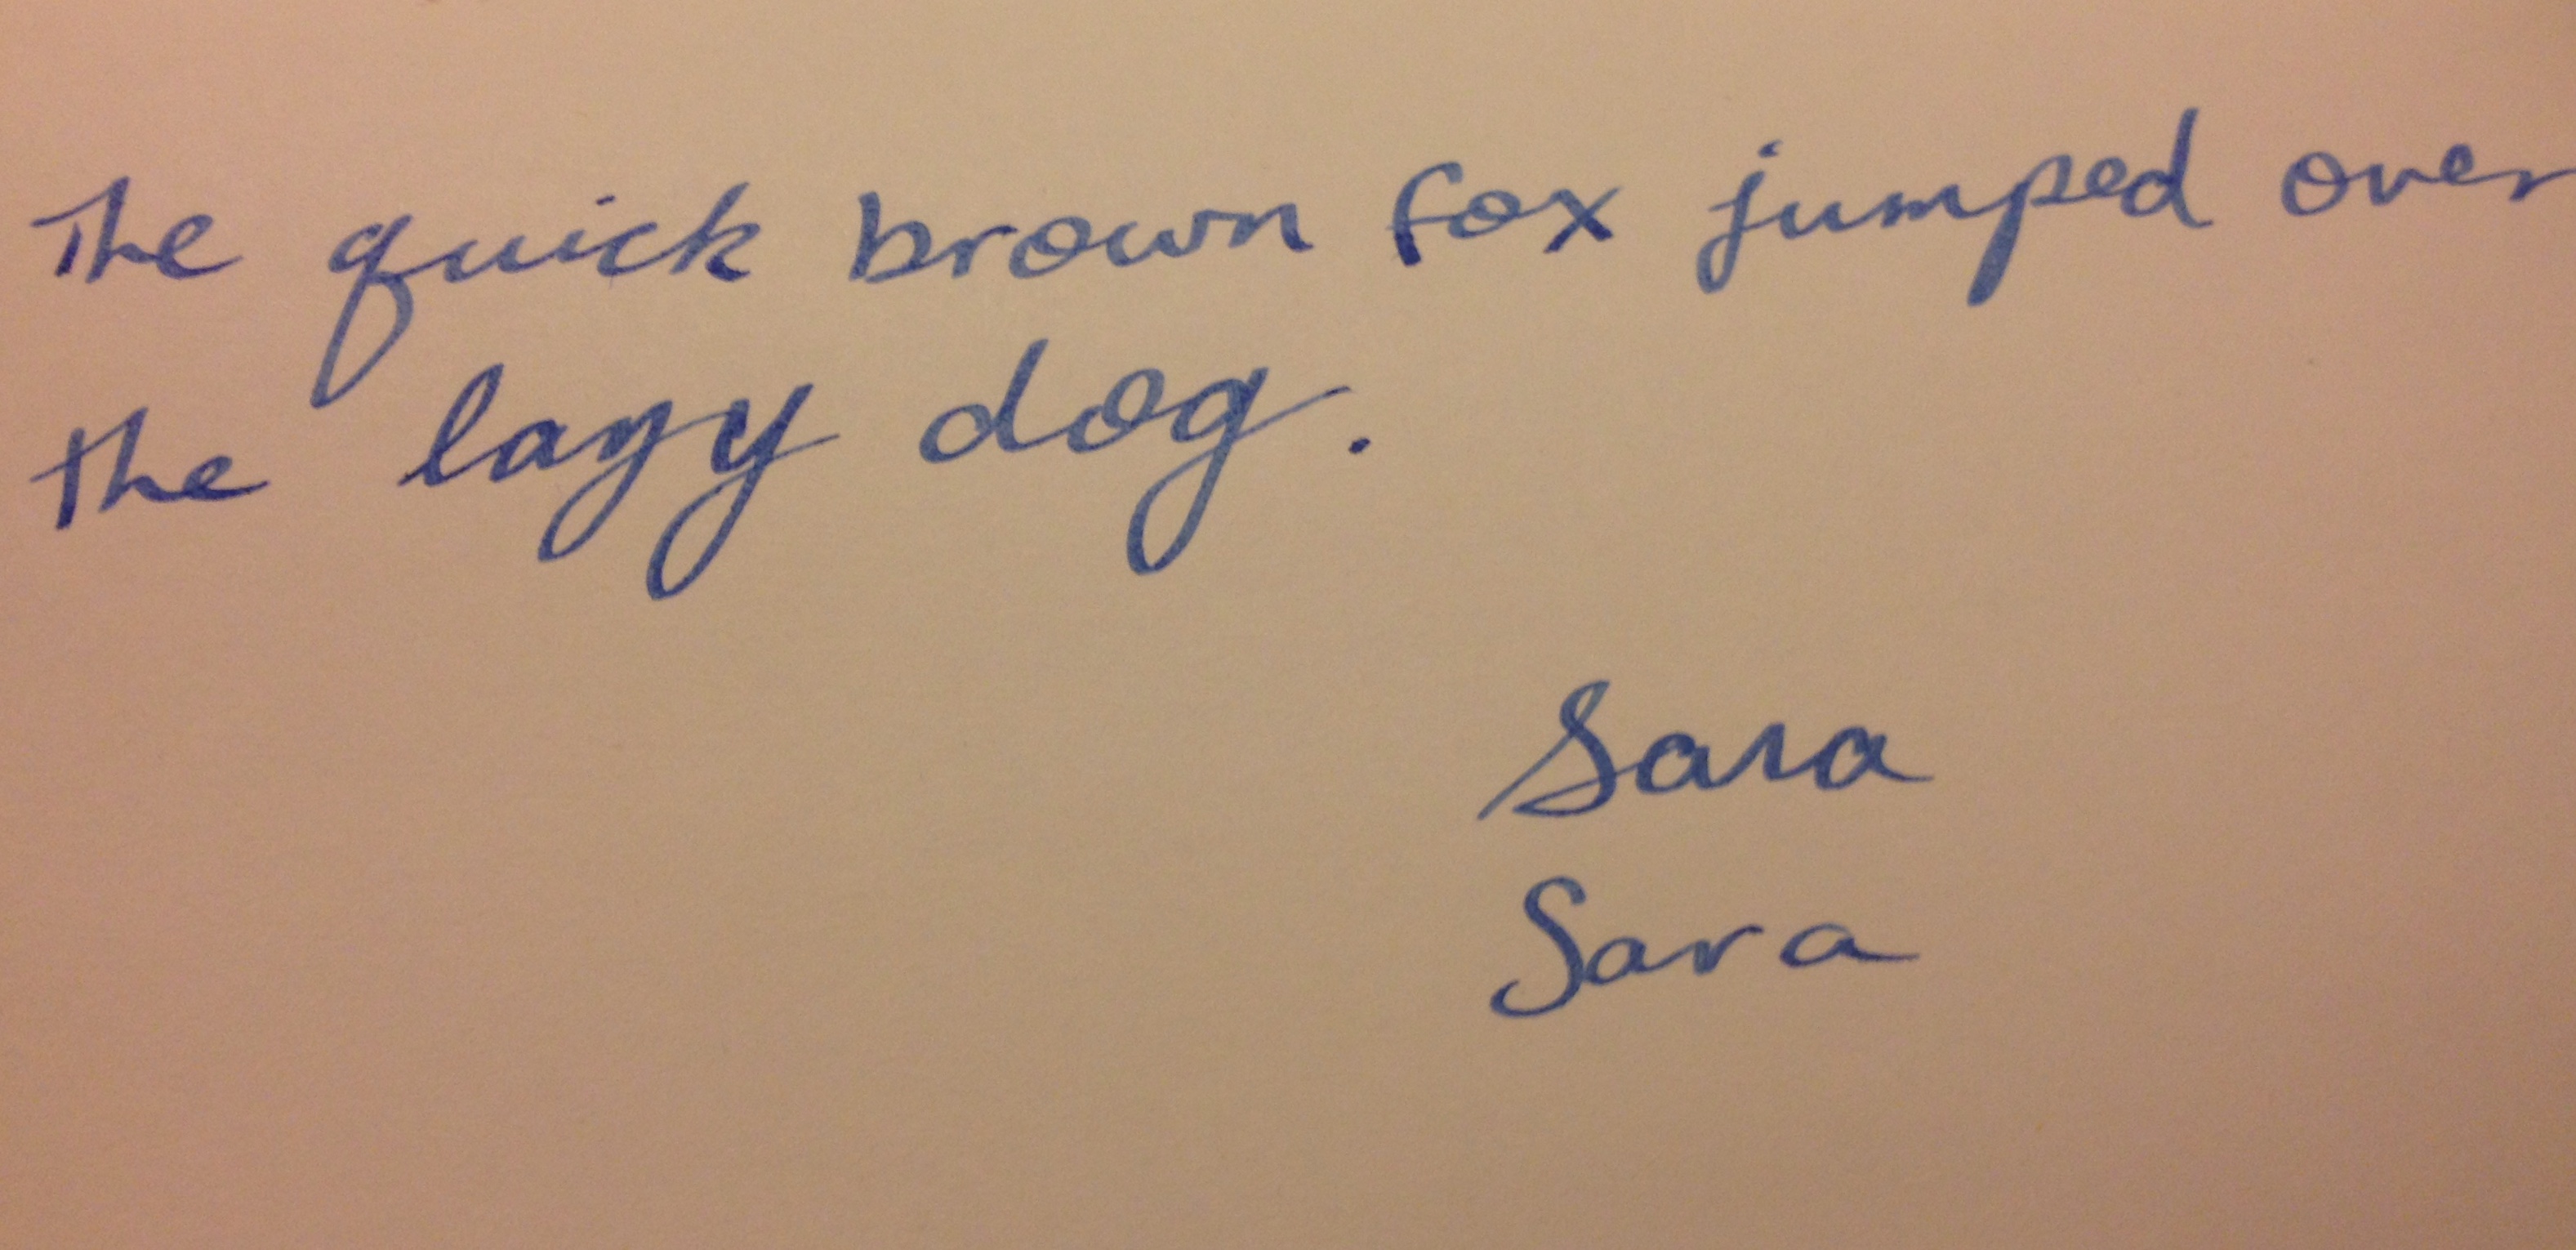 The quick brown fox jumped over
the lazy dog.
Sara
Sara